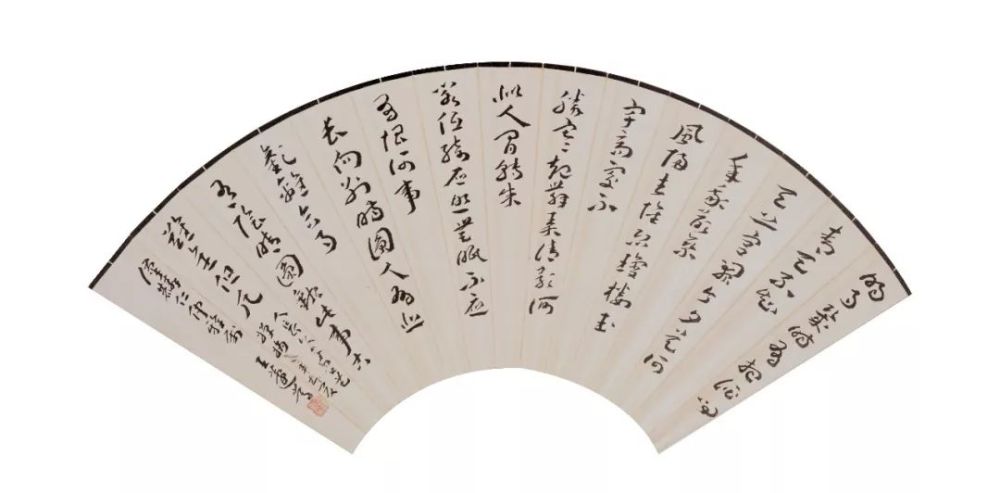 明月幾時有把酒問
青天不知
天上宮闕今夕是何
年我欲乘
風歸去恐瓊樓玉
宇高寒不
勝寒起舞弄清影何
似人間轉朱
閣低綺戶照無眠不應
有恨何事
長向別時圓人有悲
歡離合月
有陰晴圓缺此事古
難全但願
人長久
仁仲雅屬
王蘧常